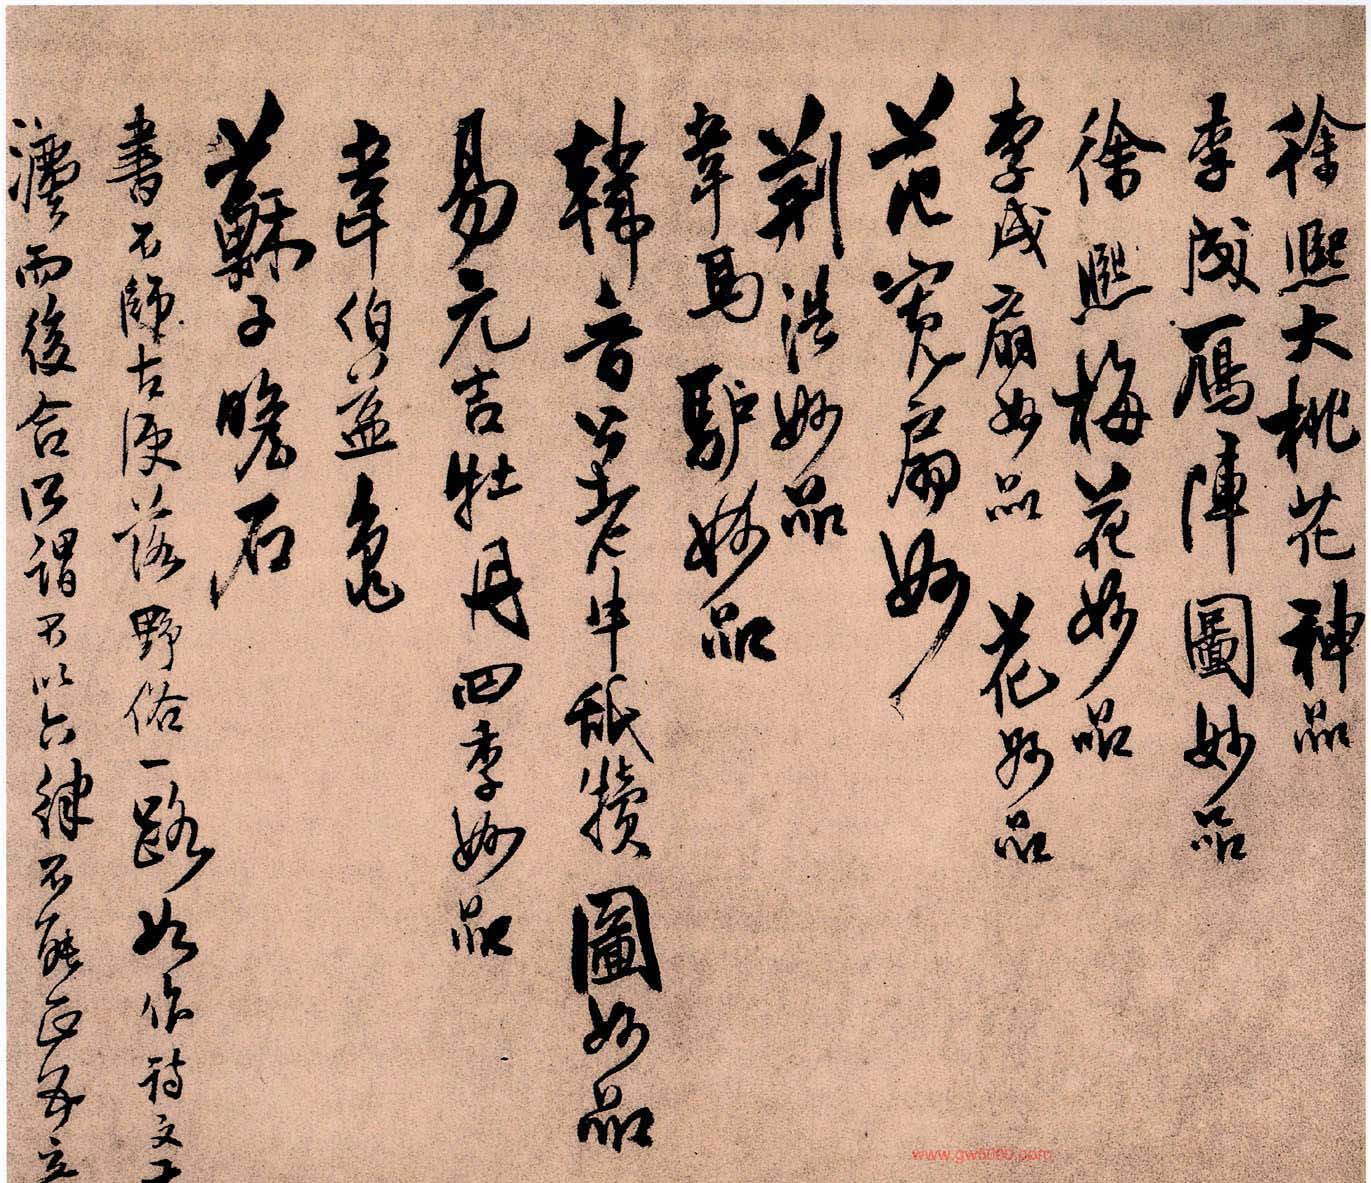 徐熙大桃花神品
李成雁陣圖妙品
徐熙梅花妙品
李成扇妙品 花妙品
范寬扇妙
荊浩妙品
韋馬驢妙品
韓晉公老牛舐犢圖妙品
易元吉牡丹四季妙品
韋伯益龜
蘇子瞻石
書不師古便落野俗一路如作詩文
而後合所謂不以六律不能正五音
www.gw8000.com